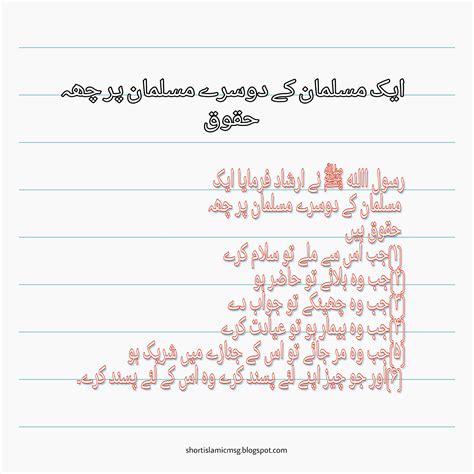 ایک مسلمان کے دوسرے مسلمان پر چھہ
حقوق
رسول اﷲ ﷺ نے ارشاد فرمایا ایک
مسلمان کے دوسرے مسلمان پر چھہ
حقوق ہیں
(۱)جب اُس سے ملے تو سلام کرے
(۲)جب وہ بلائے تو حاضر ہو
(۳)جب وہ چھینکے تو جواب دے
(۴)جب وہ بیمار ہو تو عیادت کرے
(۵)جب وہ مر جائے تو اس کے جنازے میں شریک ہو
(۶)اور جو چیز اپنے لئے پسند کرے وہ اس کے لئے پسند کرے۔
shortislamicmsg.blogspot.com